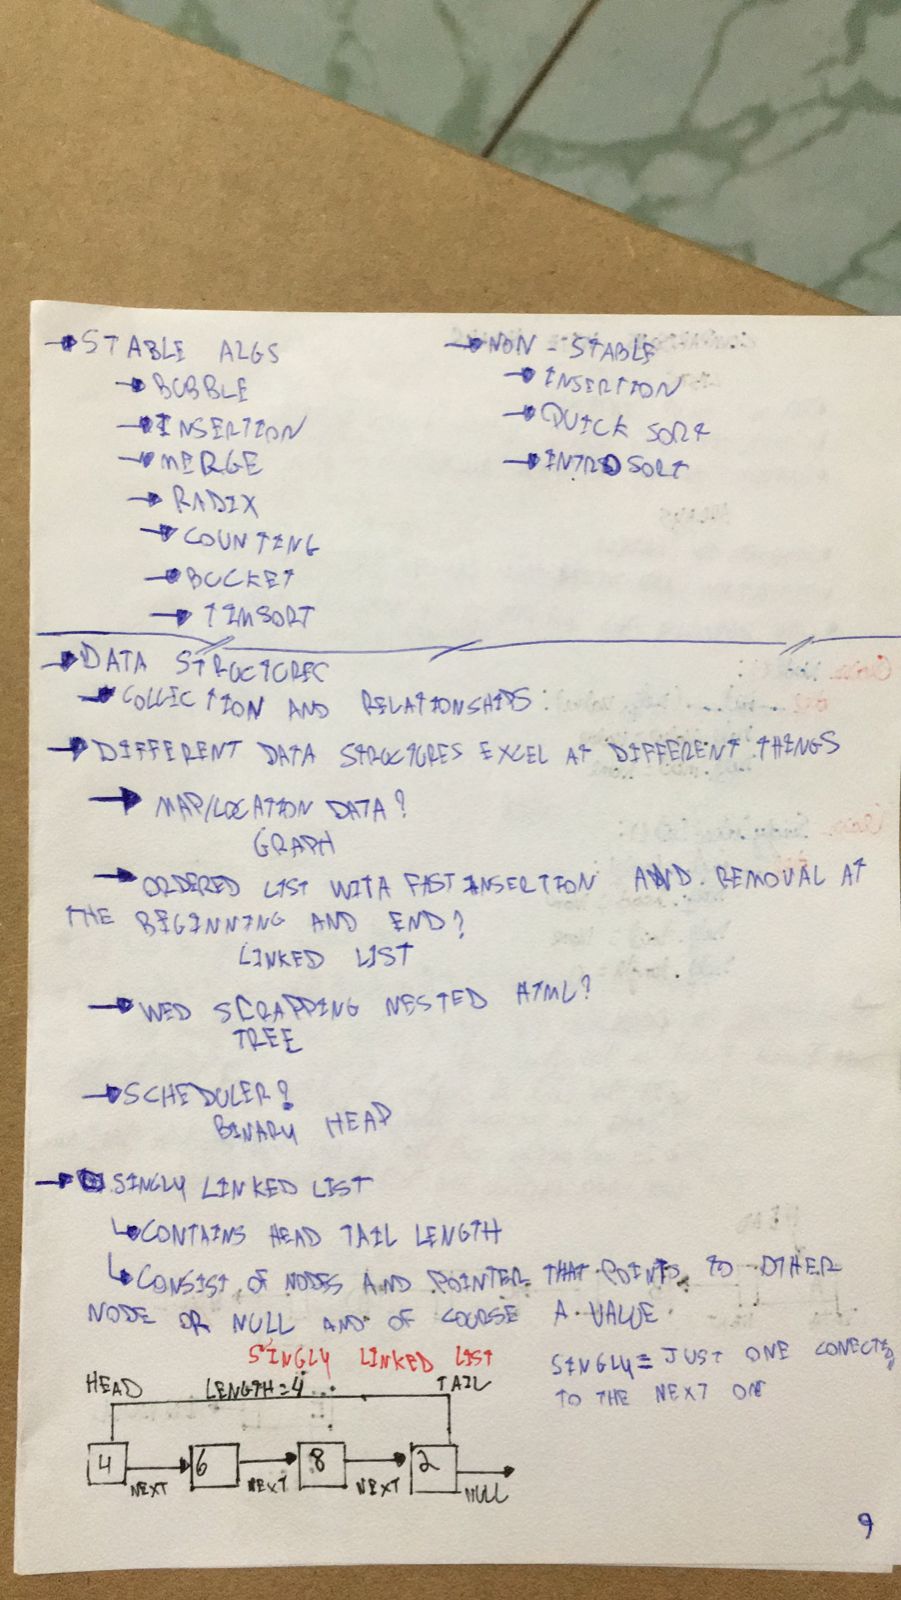 → STABLE ALGS
→ BUBBLE
→ INSERTION
→ MERGE
→ RADIX
→ COUNTING
→ BUCKET
→ TIMSORT
→ NON - STABLE
→ INSERTION
→ QUICK SORT
→ INTROSORT
→ DATA STRUCTURES
→ COLLECTION AND RELATIONSHIPS
→ DIFFERENT DATA STRUCTURES EXCEL AT DIFFERENT THINGS
→ MAP/LOCATION DATA?
GRAPH
→ ORDERED LIST WITH FAST INSERTION AND REMOVAL AT
THE BEGINNING AND END?
LINKED LIST
→ WED SCRAPPING NESTED HTML?
TREE
→ SCHEDULER?
BINARY HEAP
→ SINGLY LINKED LIST
↳ CONTAINS HEAD TAIL LENGTH
↳ CONSIST OF NODES AND POINTER THAT POINTS TO OTHER
NODE OR NULL AND OF COURSE A VALUE
SINGLY LINKED LIST
SINGLY = JUST ONE CONECTS
TO THE NEXT ON
HEAD LENGTH = 4 TAIL
4 6 8 2
NEXT NEXT NEXT NULL
9